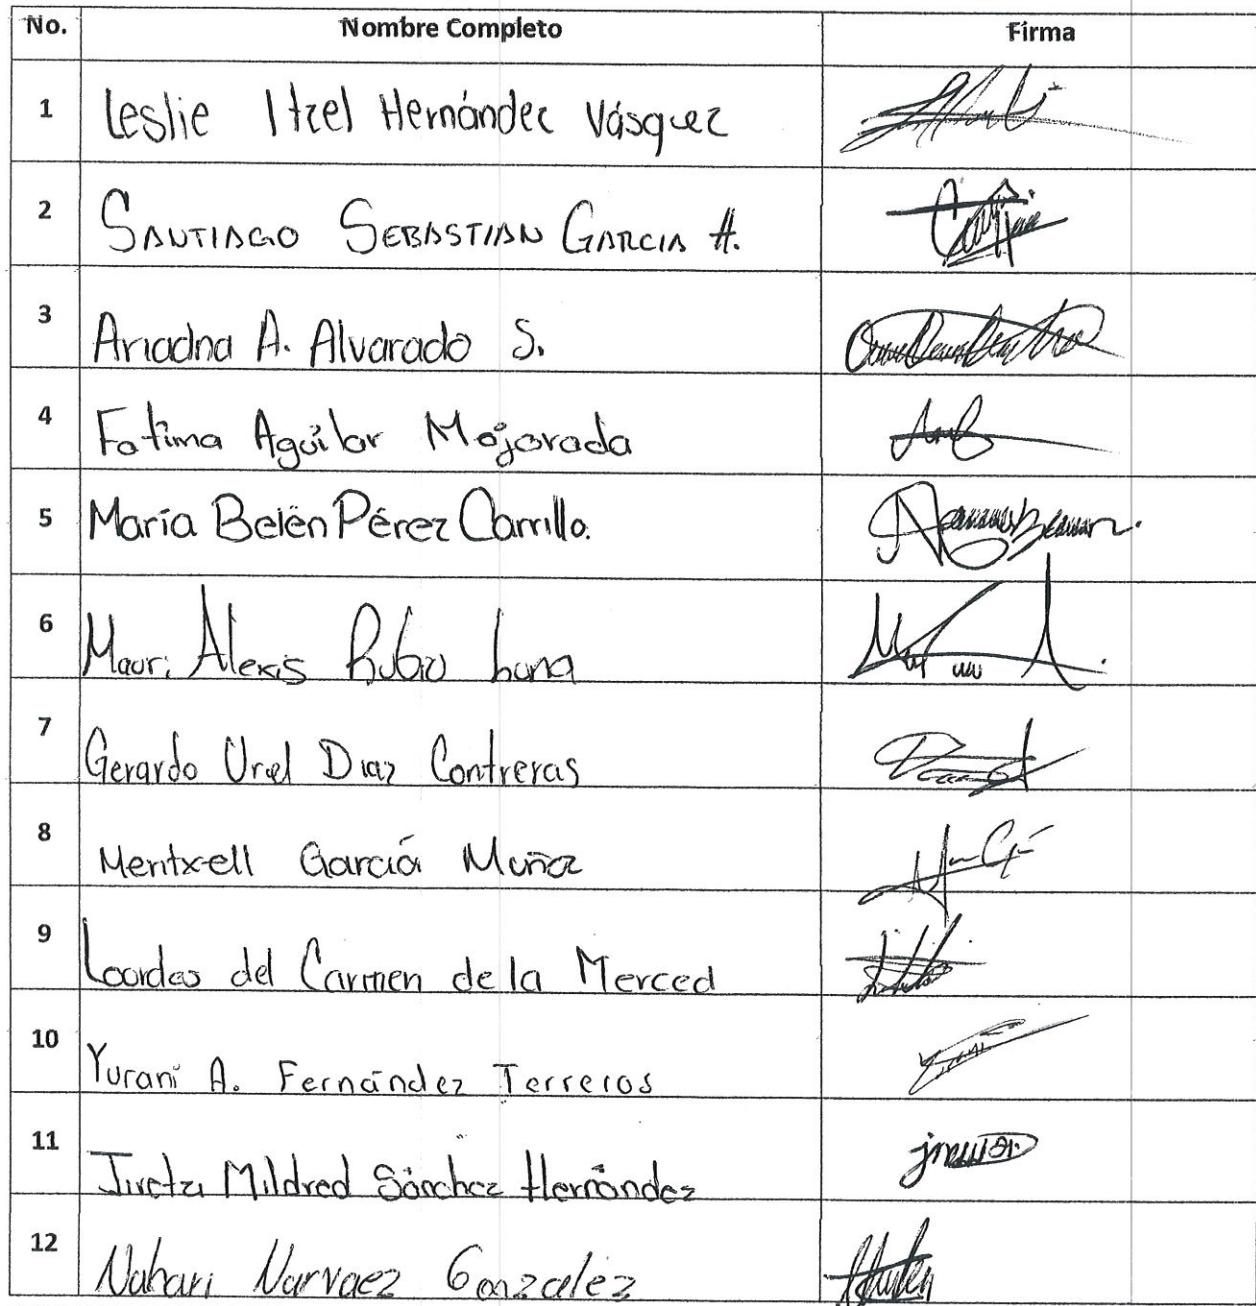 No. Nombre Completo Firma
1 Leslie Itzel Hernández Vásquez
2 SANTIAGO SEBASTIAN GARCIA H.
3 Ariadna A. Alvarado S.
4 Fatima Aguilar Mojorada
5 María Belén Pérez Carrillo.
6 Mauri Alexis Rubio Luna
7 Gerardo Uriel Diaz Contreras
8 Meritxell García Muñoz
9 Lourdes del Carmen de la Merced
10 Yurani A. Fernández Terreros
11 Mildred Sánchez Hernández
12 Nahari Narvaez Gonzalez